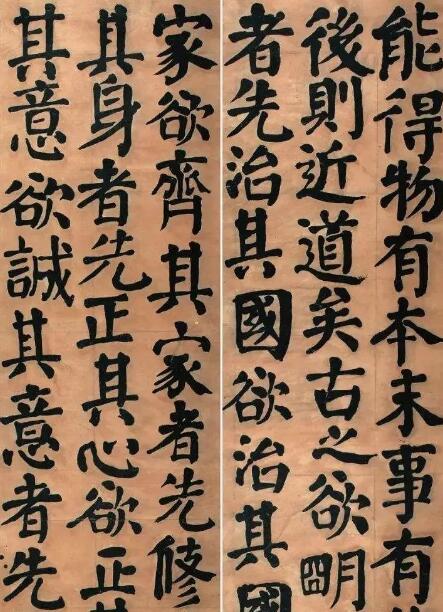 能得物有本末事有
後則近道矣古之欲朙
者先治其國欲治其國
家欲齊其家者先修
其身者先正其心欲正其
其意欲誠其意者先